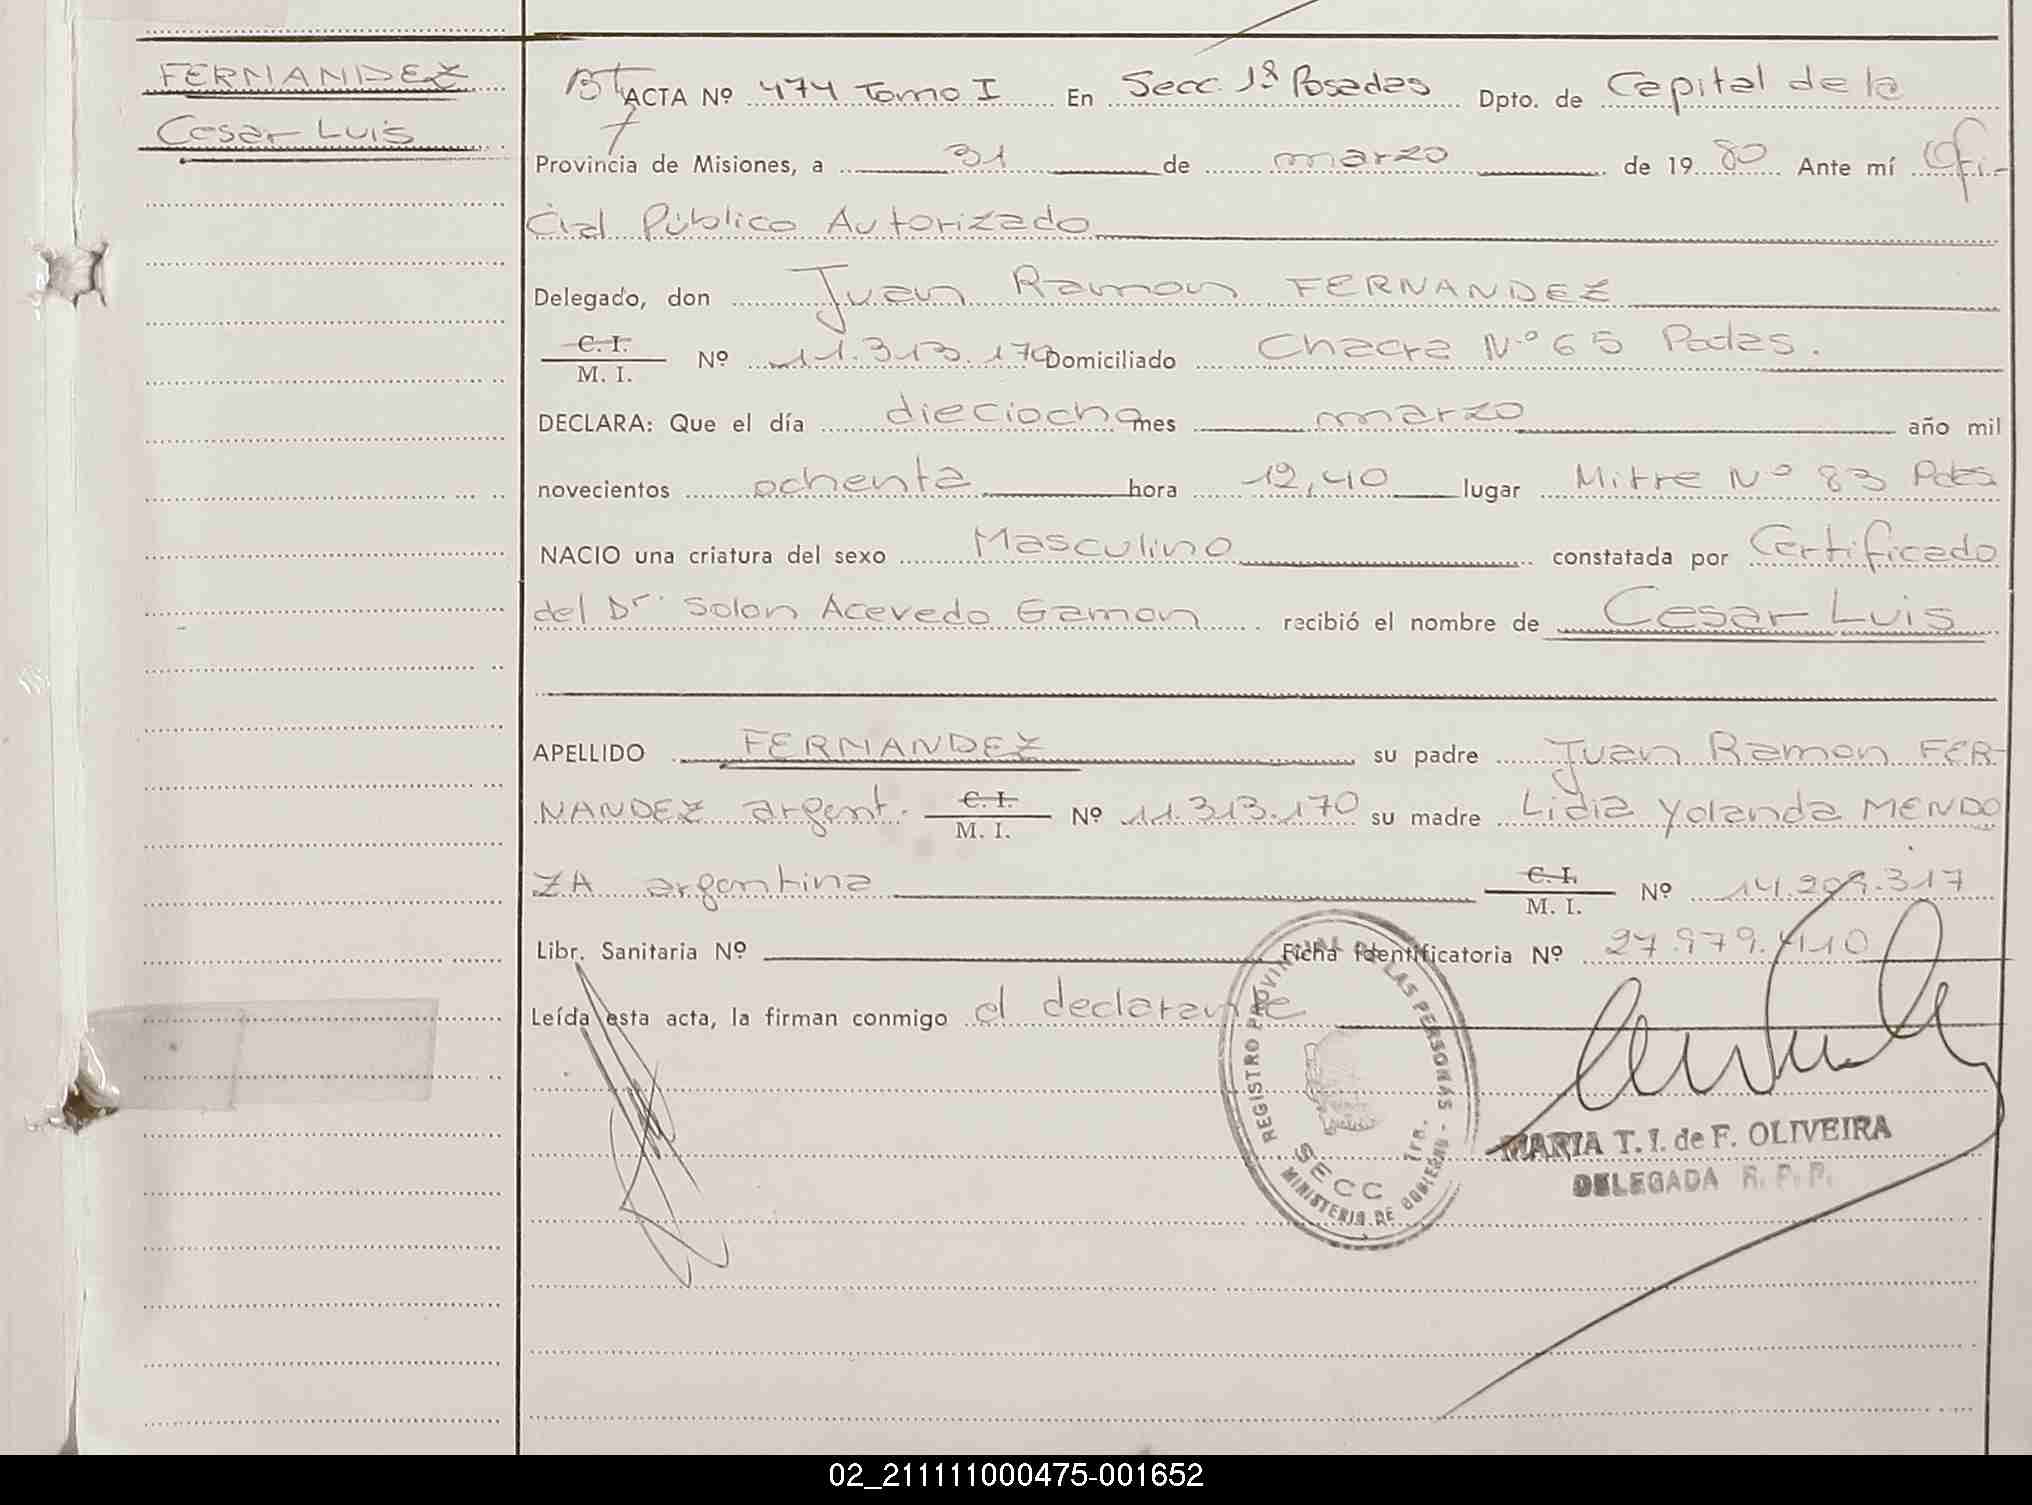 FERNANDEZ
Cesar Luis
ACTA Nº 474 Tomo I En Secc. 1ª Posadas Dpto. de Capital de la
Provincia de Misiones, a 31 de marzo de 1980 Ante mí Ofi-
cial Público Autorizado
Delegado, don Juan Ramon FERNANDEZ
C. I.
M. I. Nº 11.313.170 Domiciliado Chacra Nº 65 Podas.
DECLARA: Que el día dieciocho mes marzo año mil
novecientos ochenta hora 12,40 lugar Mitre Nº 83 Pdas
NACIO una criatura del sexo Masculino constatada por Certificado
del Dr. Solon Acevedo Gamon recibió el nombre de Cesar Luis
APELLIDO FERNANDEZ su padre Juan Ramon FER-
NANDEZ argent. C. I. M. I. Nº 11.313.170 su madre Lidia Yolanda MENDO
ZA argentina C. I. M. I. Nº 14.209.317
Libr. Sanitaria Nº Ficha Identificatoria Nº 27.979.410
Leída esta acta, la firman conmigo el declarante
REGISTRO PROVINCIAL DE LAS PERSONAS - MINISTERIO DE GOBIERNO -
SECC 1ra.
MARIA T. I. de F. OLIVEIRA
DELEGADA R. P. P.
02_211111000475-001652